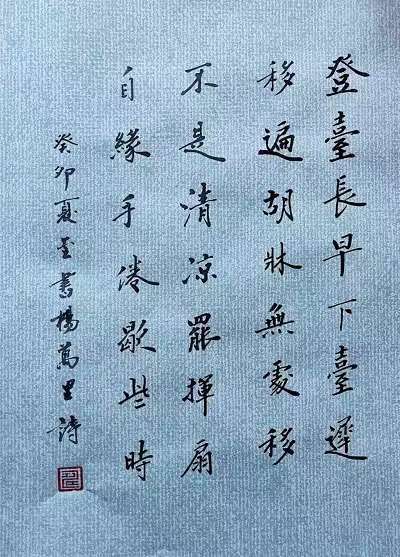 登臺長早下臺遲
移遍胡牀無處移
不是清涼罷揮扇
自緣手倦歇些時
癸卯夏至書楊萬里詩